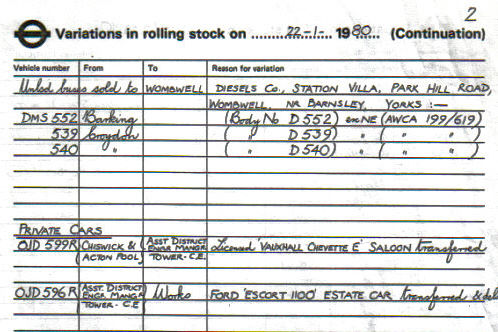 2
Variations in rolling stock on ..........22-1-.... 1980.... (Continuation)
Vehicle number From To Reason for variation
Unlsd buses sold to WOMBWELL DIESELS Co., STATION VILLA, PARK HILL ROAD,
WOMBWELL, NR BARNSLEY, YORKS :—
DMS 552 Barking (Body No D 552) ex NE (AWCA 199/619)
539 Croydon ( " D 539) " ( " " )
540 " ( " D 540) " ( " " )
PRIVATE CARS
OJD 599R CHISWICK & ASST DISTRICT Licensed 'VAUXHALL CHEVETTE E' SALOON transferred
ACTON POOL ENGR MANGR
TOWER - C.E.
OJD 596R ASST. DISTRICT Works FORD 'ESCORT 1100' ESTATE CAR transferred & del
ENGR MANGR
TOWER - C.E